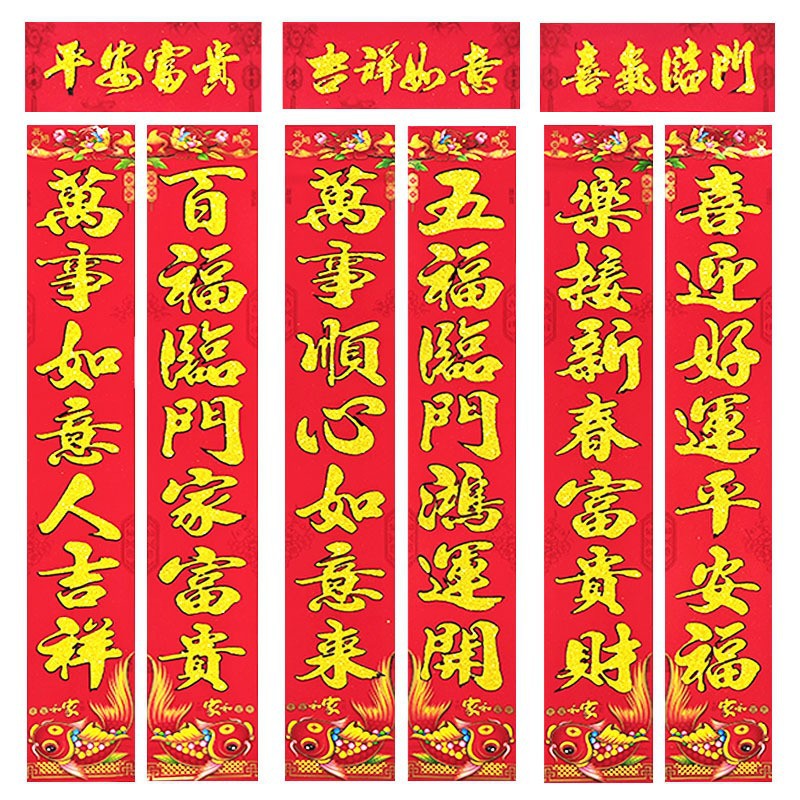 平安富貴
吉祥如意
喜氣臨門
萬事如意人吉祥
百福臨門家富貴
萬事順心如意来
五福臨門鴻運開
樂接新春富貴財
喜迎好運平安福